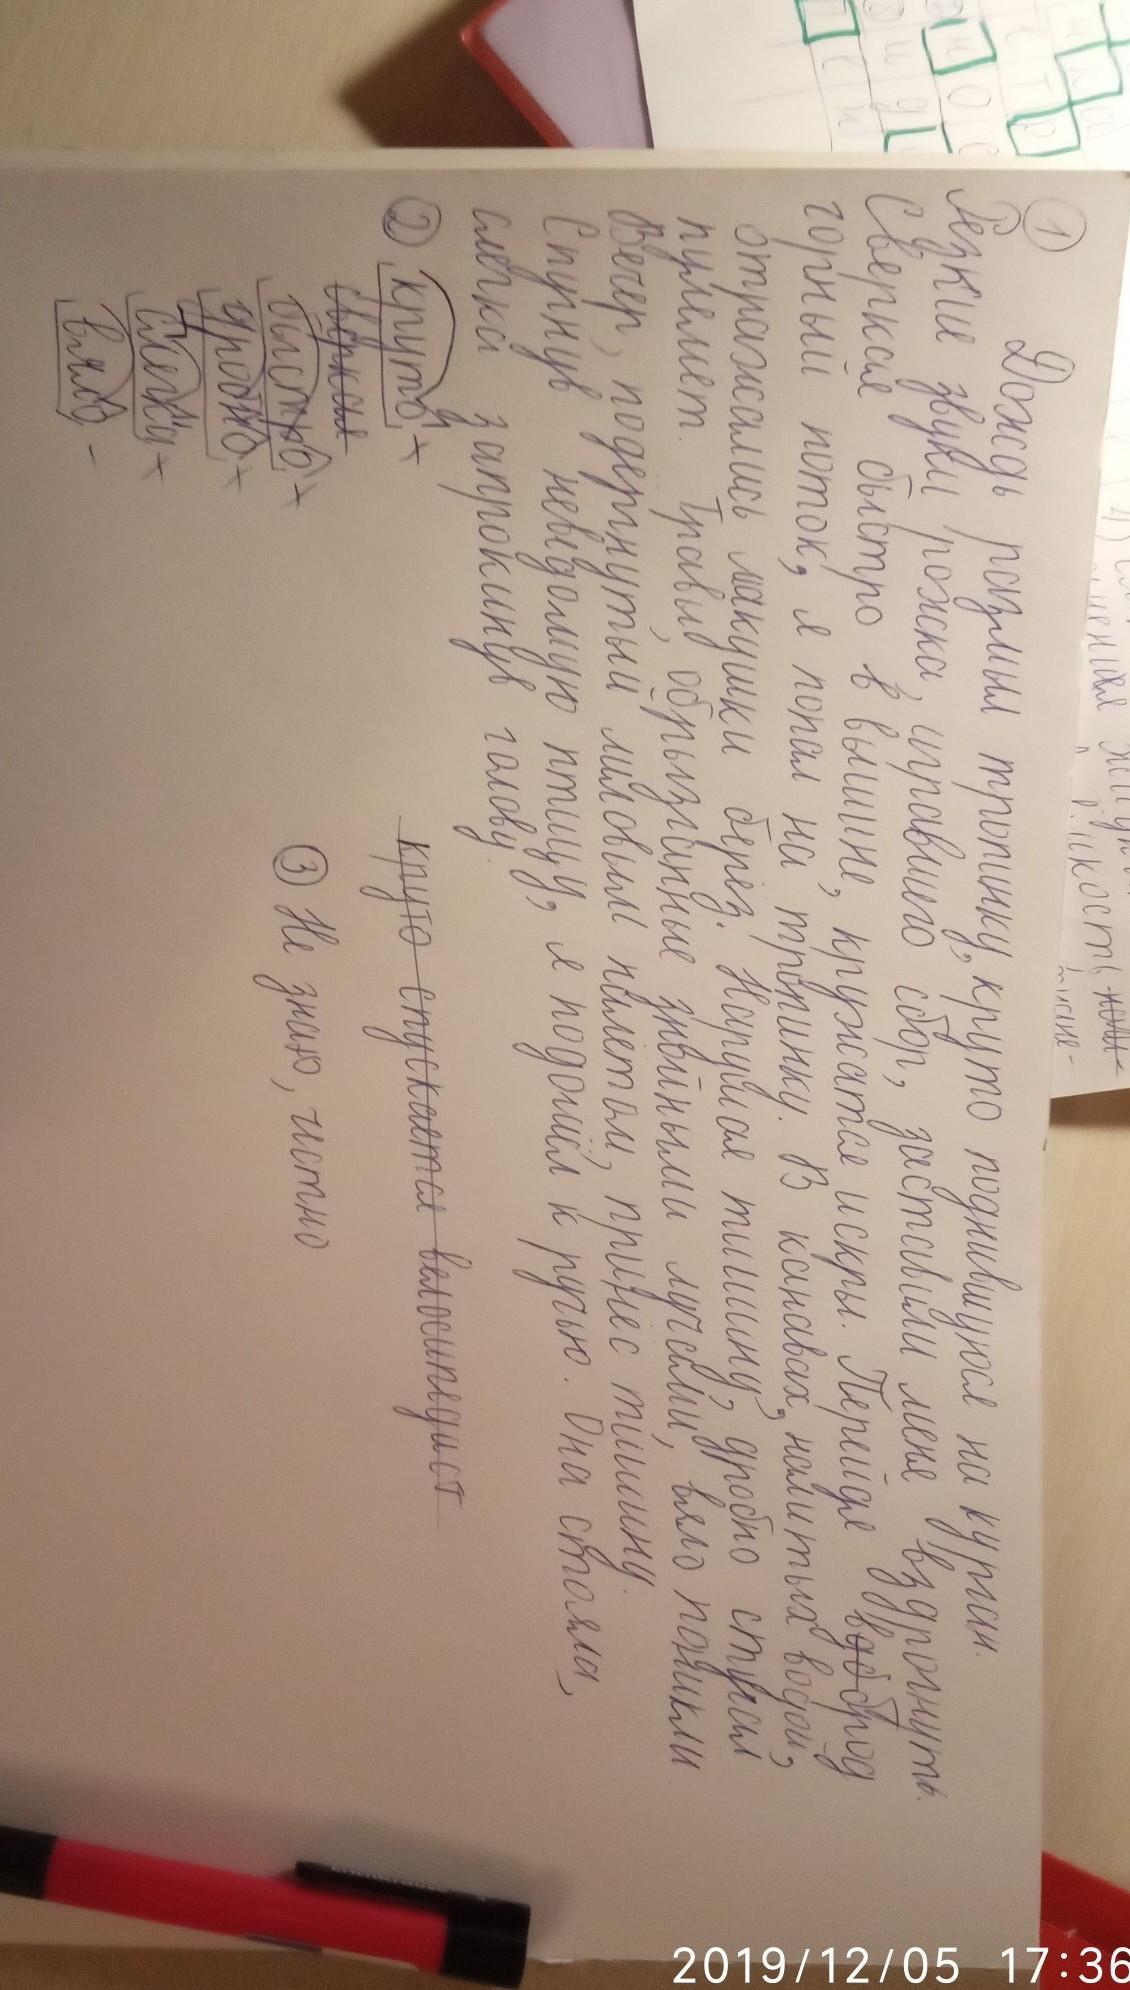 ①
Дождь размыл тропинку, круто поднявшуюся на курган.
Резкие звуки рожка, игравшего сбор, заставили меня вздрогнуть.
Сверкая быстро в вышине, кружатся искры. Перейдя вброд
горный поток, я попал на тропинку. В канавах, налитых водой,
отражались макушки берёз. Нарушая тишину, дробно стучал
пулемет. Травы, обрызганные знойными лучами, вяло поникли.
Вечер, подёрнутый лиловым налётом, принёс тишину.
Спугнув неведомую птицу, я подошёл к ручью. Она стояла,
слегка запрокинув голову.
② круто +
сверкая
быстро +
дробно +
слегка +
вяло -
круто спускается велосипедист
③ Не знаю, честно
2019/12/05 17:36